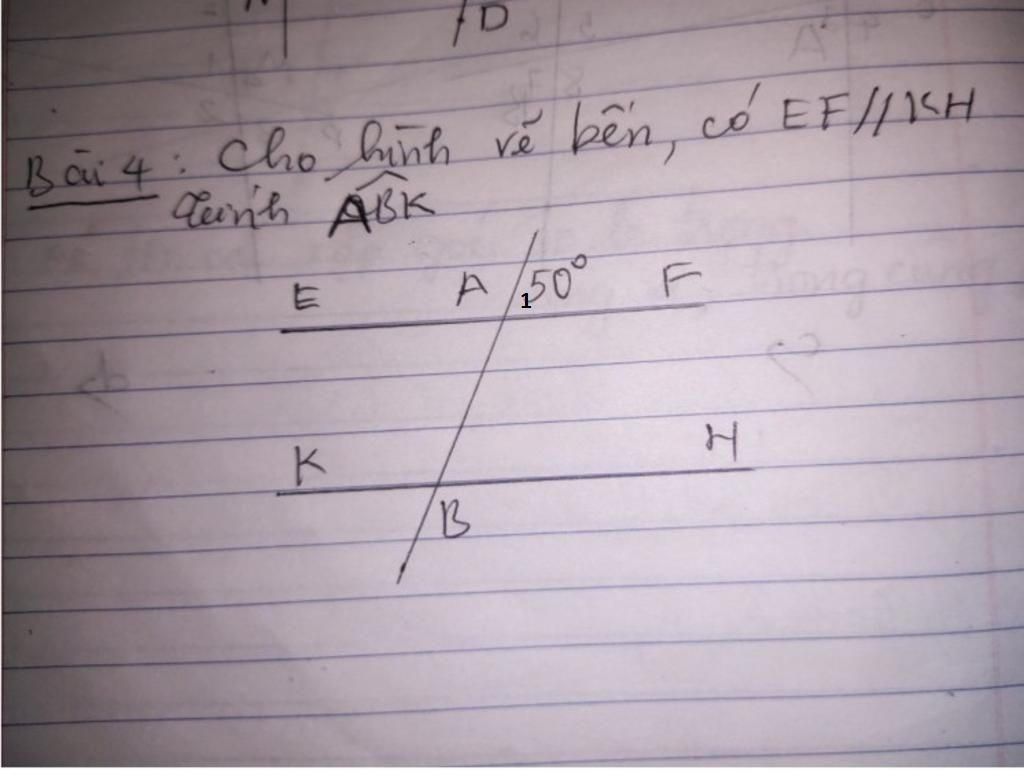 D
Bài 4 : Cho hình vẽ bên, có EF//KH
tính ABK
E A 1 50° F
K H
B